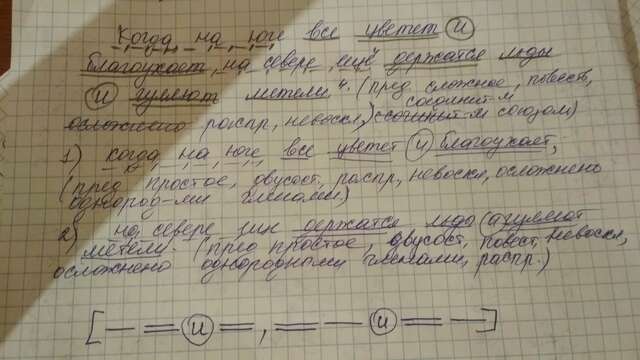 Когда на юге все цветет и
благоухает, на севере ещё держатся льды
и гуляют метели 4. (пред сложное, повеств,
сочинит-м
осложнено распр, невоскл,) союзом)
1) когда на юге все цветет и благоухает,
(пред простое, двусост, распр, невоскл, осложнень
однород-ми членами.)
2) на севере держатся льды
метели. (пред простое, двусост, повест, невоскл,
осложнено однородными членами, распр.)
[ и , и ]